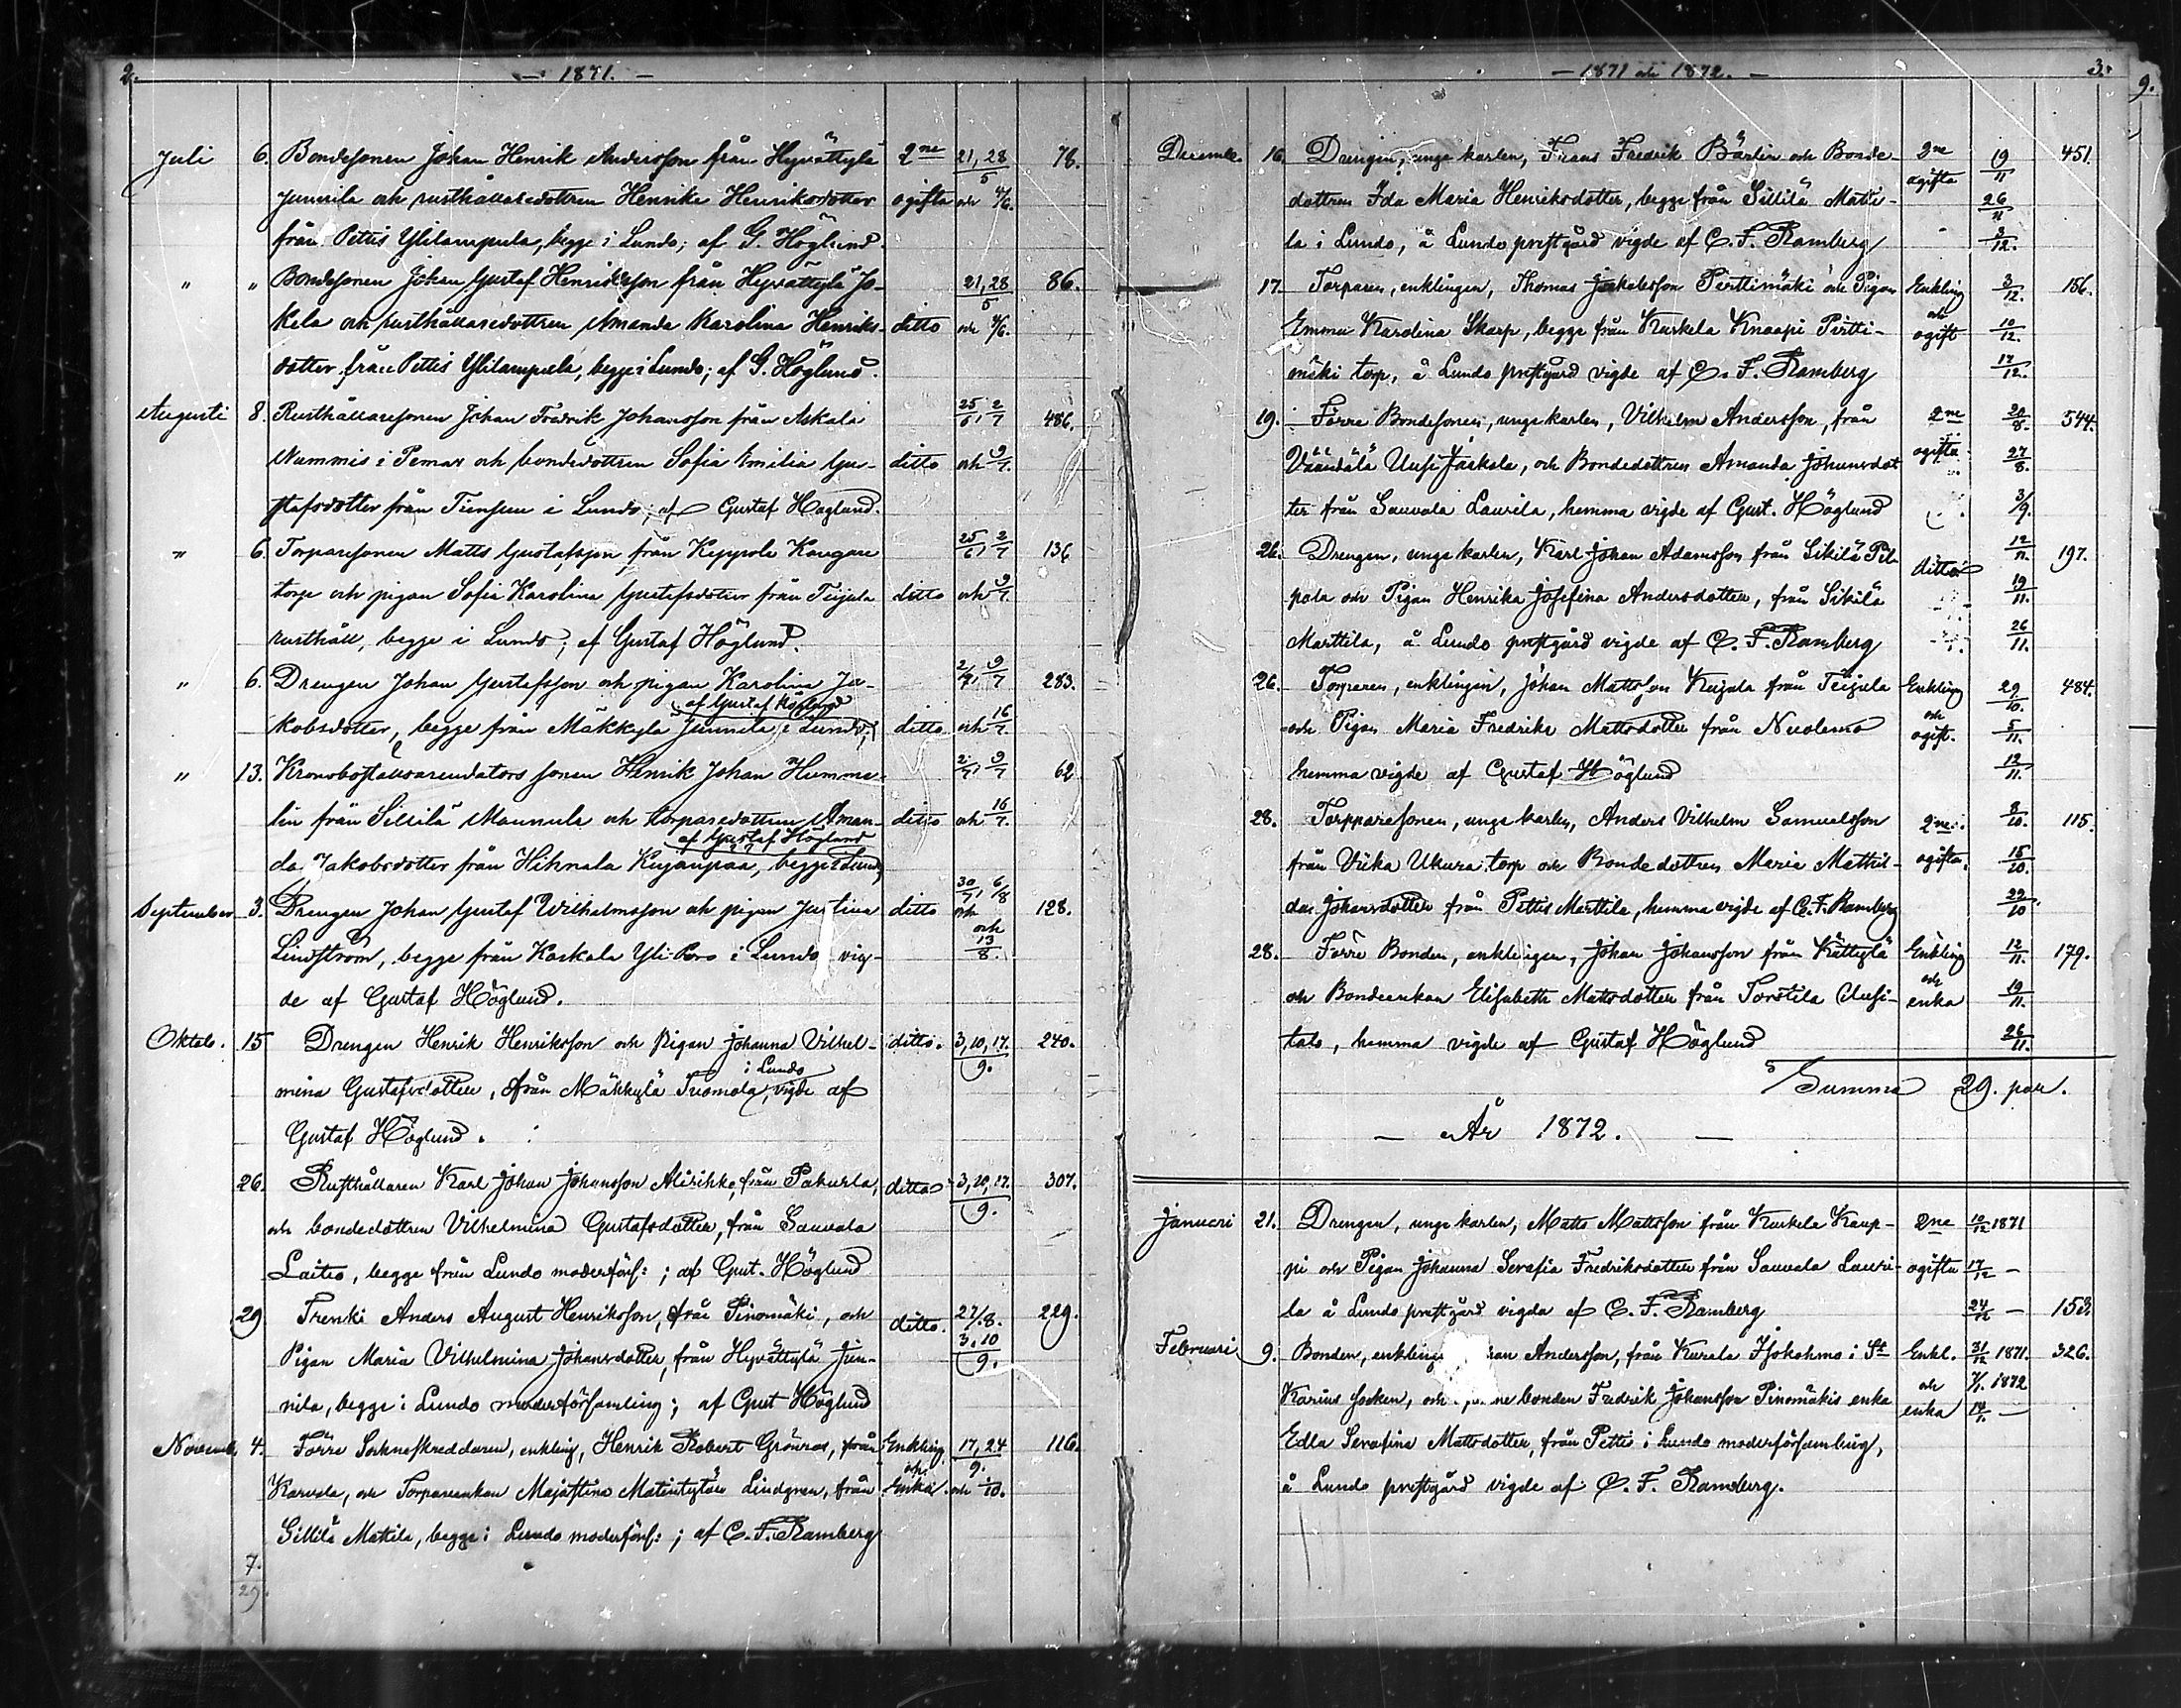 2.
— 1871. —
Juli 6. Bondesonen Johan Henrik Andersson från Hyvättylä 2ne 21, 28/5 78.
Junnila och rusthållaredottren Henrika Henriksdotter ogifta och 4/6.
från Pettis Ylilampula, begge i Lundo; af G. Höglund.
" " Bondesonen Johan Gustaf Henriksson från Hyvättylä Jo- 21, 28/5 86.
kela och rusthållaredottren Amanda Karolina Henriks- ditto och 4/6.
dotter från Pettis Ylilampula, begge i Lundo; af G. Höglund.
Augusti 8. Rusthållaresonen Johan Fredrik Johansson från Askala 25/6, 2/7 486.
Nummis i Pemar och bondedottren Sofia Emilia Gu- ditto och 9/7.
stafsdotter från Tiensuu i Lundo; af Gustaf Höglund.
" 6. Torparesonen Matts Gustafsson från Keppola Kangare 25/6, 2/7 136
torp och pigan Sofia Karolina Gustafsdotter från Teijula ditto och 9/7
rusthåll, begge i Lundo; af Gustaf Höglund.
" 6. Drengen Johan Gustafsson och pigan Karolina Ja- 2/7, 9/7 283.
kobsdotter, begge från Mäkkylä Junnila i Lundo; af Gustaf Höglund ditto och 16/7.
" 13. Kronoboställsarendators sonen Henrik Johan Humme- 2/7, 9/7 62
lin från Sillilä Mannula och torparedottren Aman- ditto och 16/7.
af Gustaf Höglund
da Jakobsdotter från Hihnala Kujanpää, begge i Lundo
September 3. Drengen Johan Gustaf Wilhelmsson och pigan Justina ditto 30/7, 6/8 och 128.
Lindström, begge från Kaskala Yli-Paro i Lundo vig- och 13/8.
de af Gustaf Höglund.
Oktob. 15 Drengen Henrik Henriksson och Pigan Johanna Vilhel- ditto. 3, 10, 17./9. 240.
i Lundo
mina Gustafsdotter, från Mäkkylä Tuomola, vigde af
Gustaf Höglund.
26. Rusthållaren Karl Johan Johansson Alirihko, från Pakurla, ditto 3, 10, 17./9. 307.
och bondedottren Vilhelmina Gustafsdotter, från Sauvala
Laitio, begge från Lundo moderförs:; af Gust. Höglund
29 Trenki Anders August Henriksson, från Pinomäki, och ditto. 27/8. 3, 10/9. 229.
Pigan Maria Vilhelmina Johansdotter, från Hyvättylä Jun-
nila, begge i Lundo moderförsamling; af Gust Höglund
Novemb. 4. Förre Sockneskreddaren, enkling, Henrik Robert Grönros, från Enkling 17, 24/9. 116.
Karvala, och Torpareenkan Majastina Matintytär Lindgren, från och Enka. och 1/10.
Sillilä Mattila, begge i Lundo moderförs:; af C. F. Ramberg
7.
29.
— 1871 och 1872. —
3.
9.
Decemb. 16. Drengen, unge karlen, Frans Fredrik Bärlin och Bonde- 2ne 19/11 451.
dottren Ida Maria Henriksdotter, begge från Sillilä Matti- ogifta 26/11
la i Lundo, å Lundo prestgård vigde af C. F. Ramberg 3/12.
17. Torparen, enklingen, Thomas Jakobsson Perttimäki och Pigan Enkling 3/12. 156.
Emma Karolina Skarp, begge från Kurkela Knaapi Pertti- och ogift 10/12.
mäki torp, å Lundo prestgård vigde af C. F. Ramberg 17/12.
19. Förre Bondesonen, unge karlen, Vilhelm Andersson, från 2ne 20/8. 544.
Väändälä Uusi Jaskala, och Bondedottren Amanda Johansdot ogifta 27/8.
ter från Sauvala Laurila, hemma vigde af Gust. Höglund 3/9.
26. Drengen, unge karlen, Karl Johan Adamsson från Sikilä Pil- ditto 12/11. 197.
pola och Pigan Henrika Josefina Andersdotter, från Sikilä 19/11.
Marttila, å Lundo prestgård vigde af C. F. Ramberg 26/11.
26. Torparen, enklingen, Johan Mattsson Kujala från Teijula Enkling 29/10. 484.
och Pigan Maria Fredrika Mattsdotter från Nuolemo och ogift. 5/11.
hemma vigde af Gustaf Höglund 12/11.
28. Torpparesonen, unge karlen, Anders Vilhelm Samuelsson 2ne 8/10. 115.
från Viika Ukura torp och Bondedottren Maria Mathil- ogifta. 15/10.
da Johansdotter från Pettis Marttila, hemma vigde af C. F. Ramberg 22/10
28. Förre Bonden, enklingen, Johan Johansson från Kättylä Enkling 12/11. 179.
och Bondeenkan Elisabeth Mattsdotter från Torstila Uusi- och enka 19/11.
talo, hemma vigde af Gustaf Höglund 26/11.
Summa 29. par.
— År 1872. —
Januari 21. Drengen, unge karlen, Matts Mattsson från Kurkela Kaup- 2ne 10/12 1871
pi och Pigan Johanna Serafia Fredriksdotter från Sauvala Lauri- ogifta 17/12 —
la å Lundo prestgård vigda af C. F. Ramberg 24/12 — 153.
Februari 9. Bonden, enklinge Andersson, från Kurala Isokohmo i St Enkl. 31/12 1871. 326.
Karins socken, och bonden Fredrik Johansson Pinomäkis enka och enka 7/1. 1872
Edla Serafina Mattsdotter, från Pettis i Lundo moderförsamling, 14/1. —
å Lundo prestgård vigde af C. F. Ramberg.